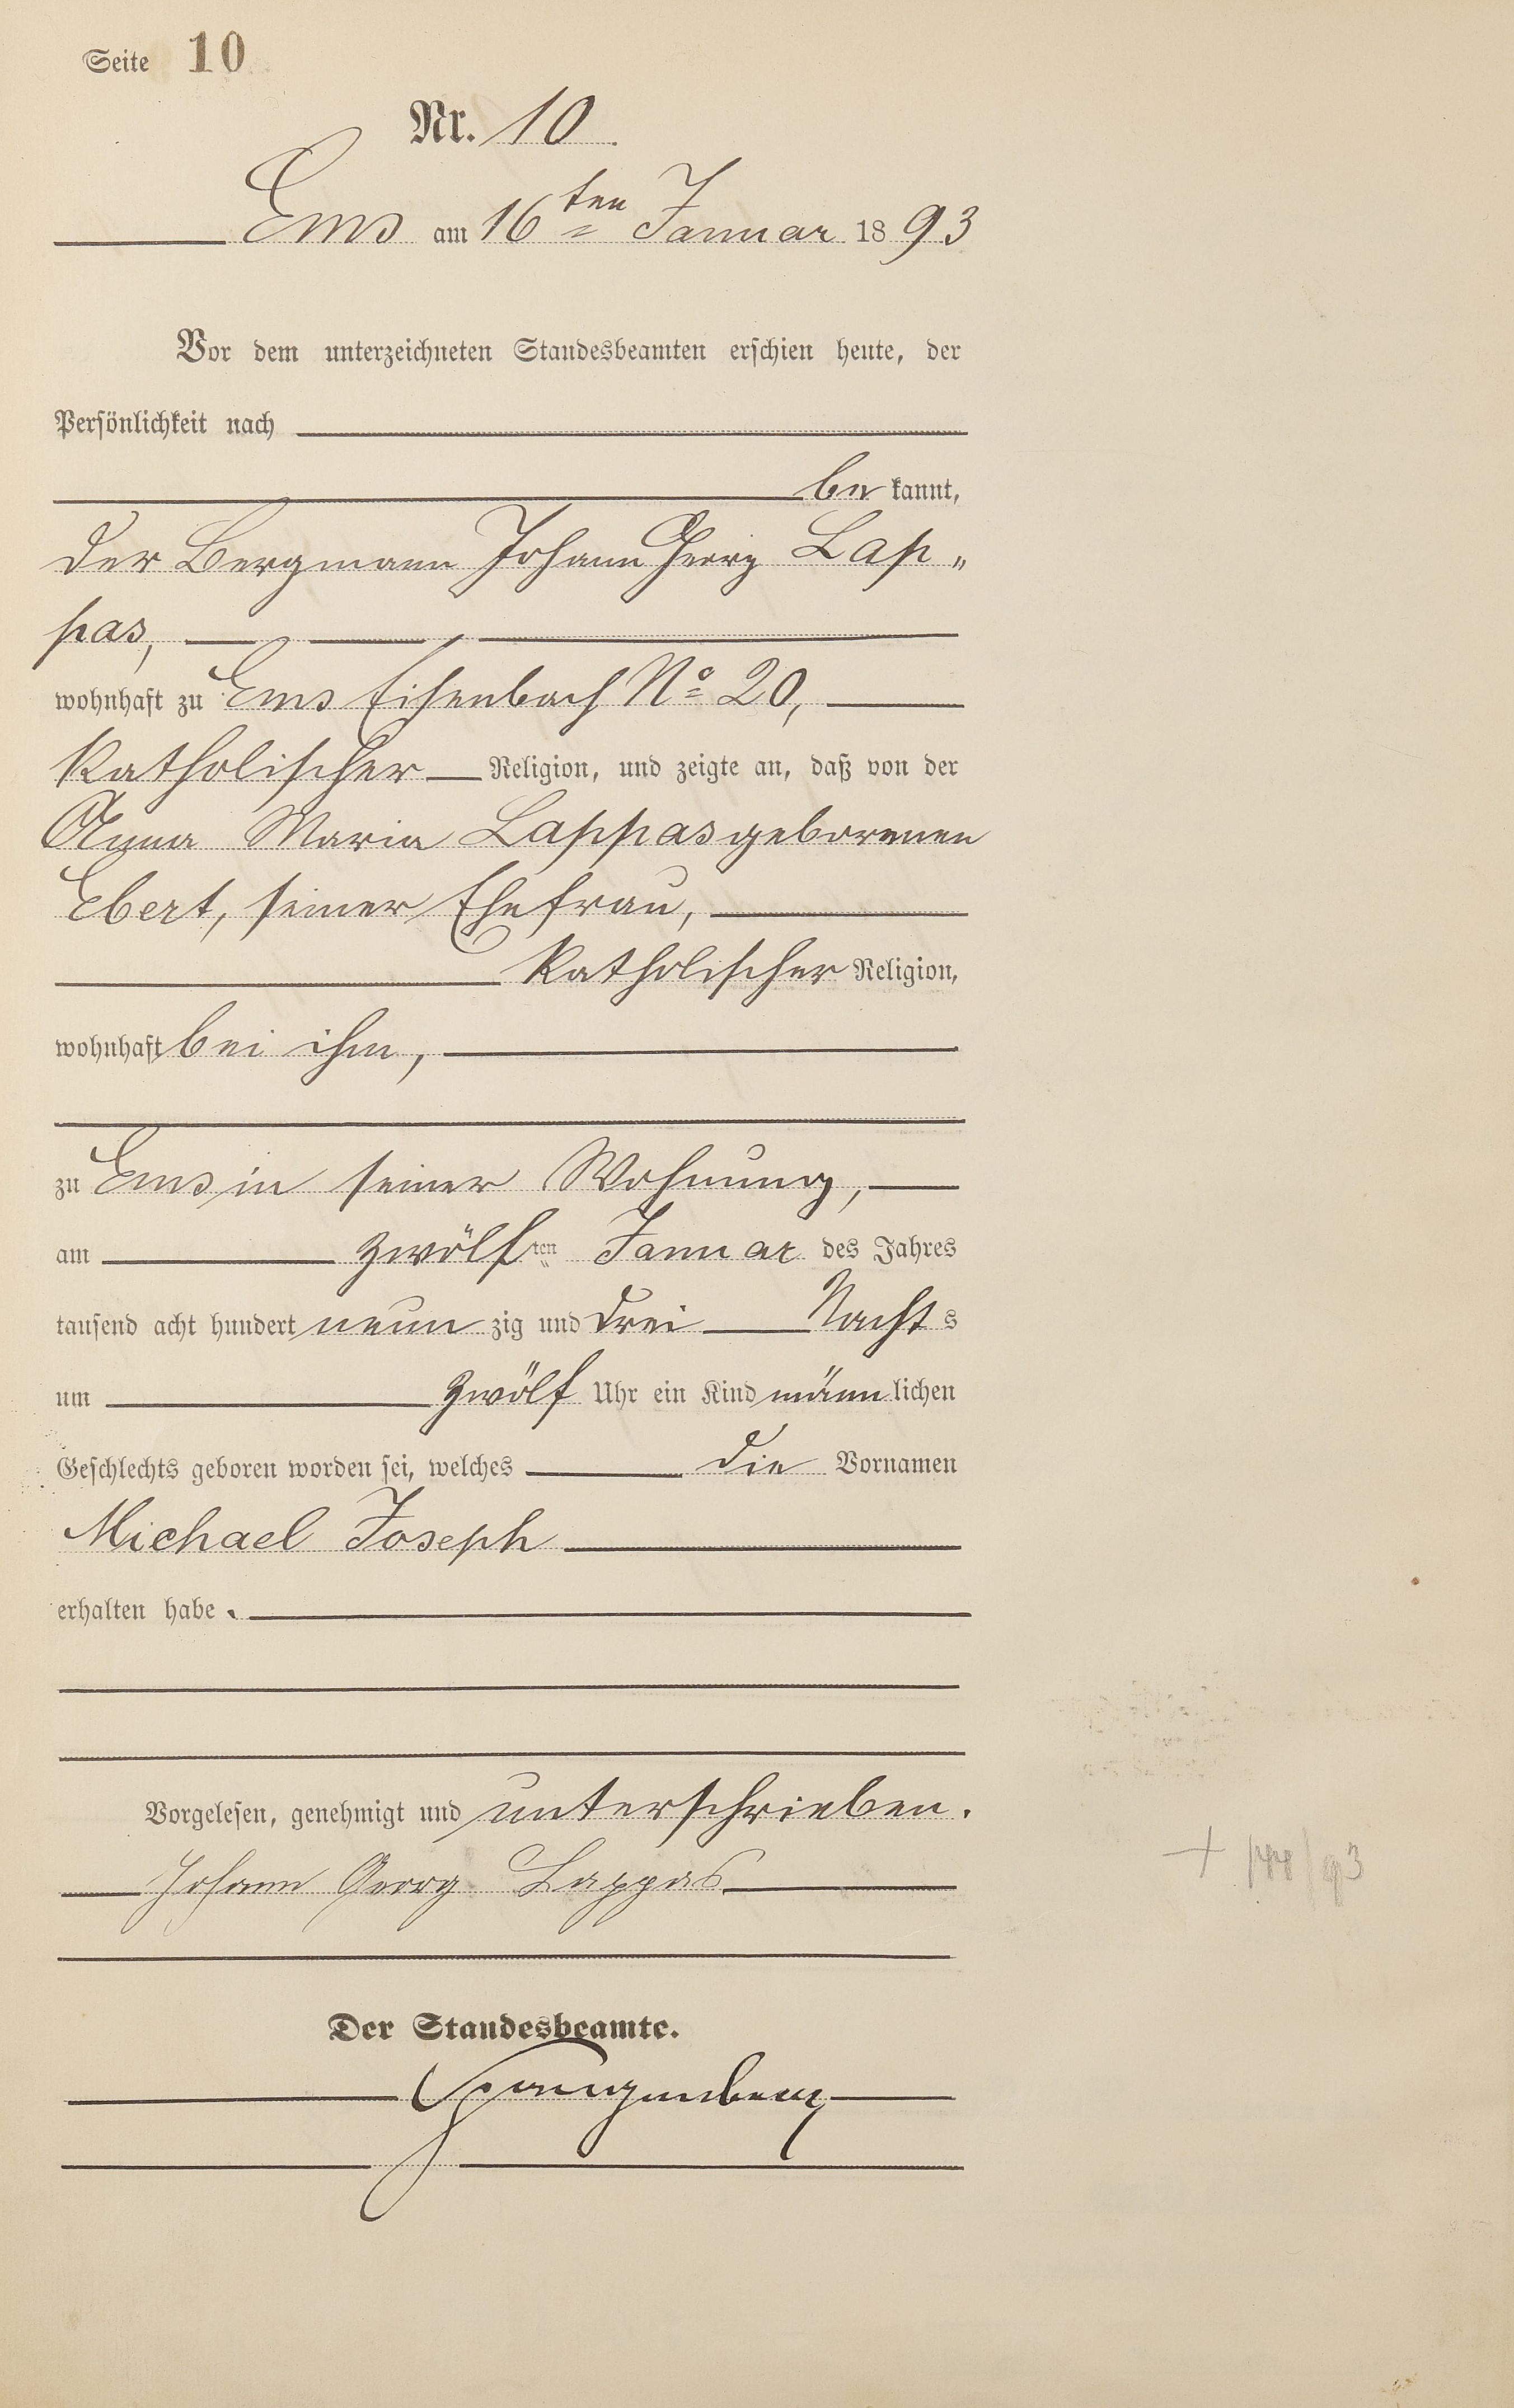 Seite 10
Nr. 10
Ems am 16ten Januar 1893
Vor dem unterzeichneten Standesbeamten erschien heute, der
Persönlichkeit nach
be kannt,
der Bergmann Johann Georg Lap„
pas,
wohnhaft zu Ems Eisenbach No 20,
katholischer Religion, und zeigte an, daß von der
Anna Maria Lappas geborenen
Ebert, seiner Ehefrau,
katholischer Religion,
wohnhaft bei ihm,
zu Ems in seiner Wohnung,
am zwölften Januar des Jahres
tausend acht hundert neun zig und drei Nachts
um zwölf Uhr ein Kind männlichen
Geschlechts geboren worden sei, welches die Vornamen
Michael Joseph
erhalten habe.
Vorgelesen, genehmigt und unterschrieben.
Johann Georg Lappas
Der Standesbeamte.